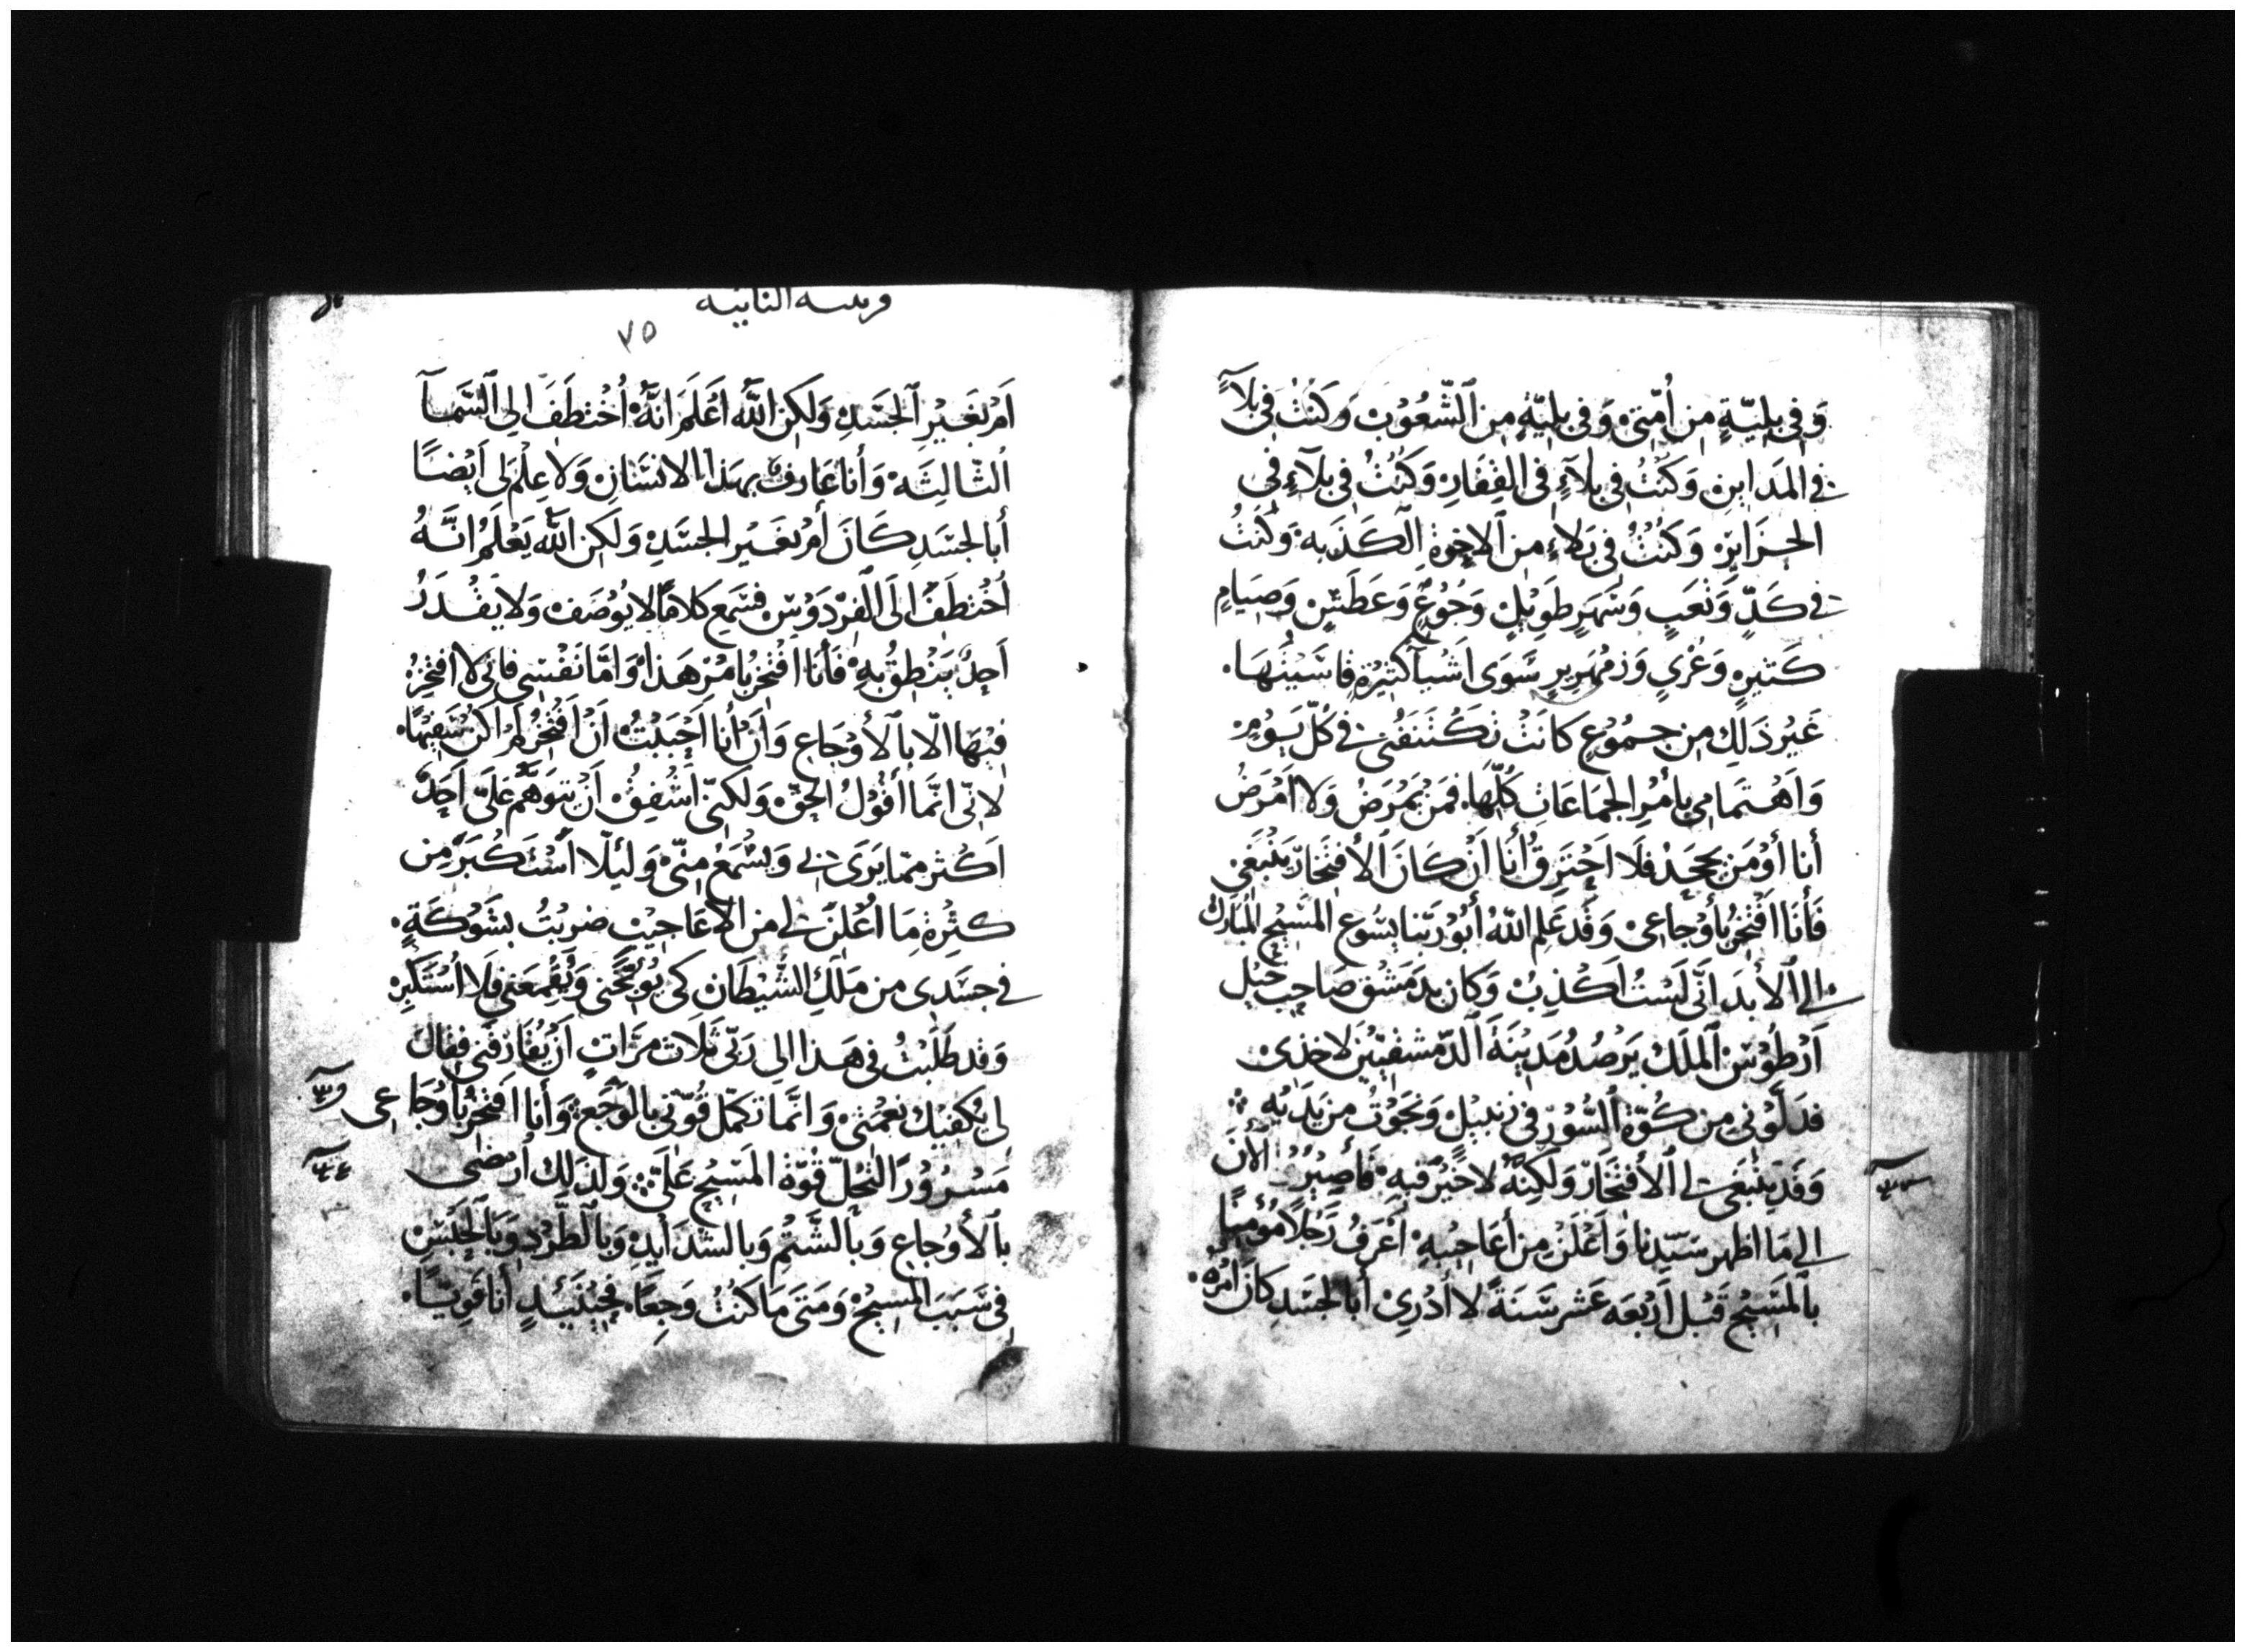 وَفِي بِلِيَّةٍ مِن أُمّتِي وَفي بلِيَّةٍ مِن ٱلشّعُوْبِ وَكنتُ فِي بَلَآءٍ
في المدَاينِ وَكنْتُ فِي بلَآءٍ فِي القِفَارِ وَكُنْتُ فِي بَلَآءٍ فِي
الجزَايرِ وَكنْتُ فِي بَلاءٍ من ٱلاخِوةِ الكَذَبه وَكُنتُ
في كَدٍّ وَتعَبٍ وَسَهَرٍ طَوِيْلٍ وَجُوْعٍ وَعَطَشٍ وَصِيَامٍ
كَثيرٍ وَعُرْيٍ وَزمْهَرِيرٍ سِّوَى اَشْيآ كثيْرةٍ قاسَيْتُهَا.
غَيْرُ ذَلِك مِن جمُوْعٍ كَانَتْ تكْتَنفُنِي في كُلّ يَوْمٍ
وَاهتمَامِي بأَمْرِ الجَمَاعَاتِ كُلّهَا. فمَنْ يَمْرَضُ وَلا اَمْرَضُ
أنا أوْ مَن يجحَدْ فلَا اَحْتَرِقُ أَنَا اِنْ كَانَ ٱلأفتخَارُ يَنْبَغي
فَأَنَا افْتخِرُ بأَوْجَاعِي وَقَد عَلِم اللّهُ أَبُوْ رَبّنا يسُوع المسِّيحِ المبَارَك
إلى ٱلأبَد انّي لَسْتُ اَكْذِبُ وَكان بدِمَشْق صَاحِب خَيْلِ
اَرْطُوْسَ ٱلملَك يَرْصُدُ مَدِيْنَةَ ٱلدّمشقيّيْنَ لاخذِي
فدَلّوْنِي مِن كُوّةِ ٱلسُّوْرِ في زنبيْلٍ وَنجَوْتُ من يَدَيْهِ
وَقَد يَنْبَغي لي ٱلأفتخَارُ وَلَكِنّهُ لا خَيْرَ فيهِ فَأَصِيْرُ الآنَ
إلى مَا اظهر سَيّدِنا وَاَعْلَنَ مِن أعَاجِيْبِهِ اَعْرِفُ رَجُلًا مُؤْمِنًا
بٱلمَسِّيْحِ قَبْل اَرْبعَه عَشر سَنَةً لا أَدْرِي أَبالجَسَدِ كَانَ امْرُهُ
قرنتيه الثانيه
٧٥
اَمْ بغَيْرِ ٱلجَسَدِ وَلَكِن اللّهُ اَعْلَمُ انّهُ اُخْتطِفَ الى السّمَآ
الثّالثَه وَأَنا عَارفٌ بهَذا الانسَانِ وَلا عِلْمَ لِي اَيْضًا
أبالجسَدِ كَانَ أَمْ بغَيْرِ الجسَدِ وَلَكِن اللّهُ يَعْلَمُ انّهُ
اُخْتطِفَ الَى ٱلفِرْدَوْسِ فسَمِع كَلامًا لا يوُصَف وَلا يَقْدَرُ
اَحدٌ يَنْطِقُ بهِ فَأنَا افْتخِرُ بامْرِ هَذا وَامَّا نَفْسِي فانّي لا افتخِرُ
فِيْهَا الّا بٱلأوْجَاعِ وَاَنْ أَنا اَحْبَبْتُ اَنْ اَفتخِرُ لَمْ اَكنْ سَفِيْهًا.
لانّي انّمَا أَقُوْلُ الحقّ وَلَكنّي اَشْفِقُ اَنْ يتوَهّمَ عَلَيّ اَحَدٌ
اَكْثر ممّا يَرَى فيّ وَيسْمَعُ مِنّي وَلئلّا اَسْتَكْبِرَ مِن
كثرةِ مَا اُعْلنَ لي من الأعَاجيْب ضرِبْتُ بشَوْكَةٍ.
في جسَدِي من مَلَكِ الشّيْطَان كي يوُبّخَني وَيُقْمِعَني فلَا اَسْتَكْبِرُ
وَقد طَلَبْتُ في هَذا إلى رَبّي ثلَاث مرّاتٍ اَنْ يُفَارقَني فقَال
لي تكْفيْك نعْمتي وَانّمَا تكمّل قُوّتي بالوَجَع وَأَنا افتخِرُ بأَوْجَاعِي
مَسْرُوْرًا لتحُلّ قُوّة المسّيْحِ عَلَيّ وَلذَلِك اَرْضَى
بٱلأوْجَاعِ وَبٱلشّتْمِ وَبالشّدَايدِ وَبٱلطّرْدِ وَبٱلحَبْسِ
في سَبَبِ المسِيْحِ وَمَتَى مَا كنتُ وَجِعًا. فحِيْنَئِذٍ أنا قَوِيًّا.